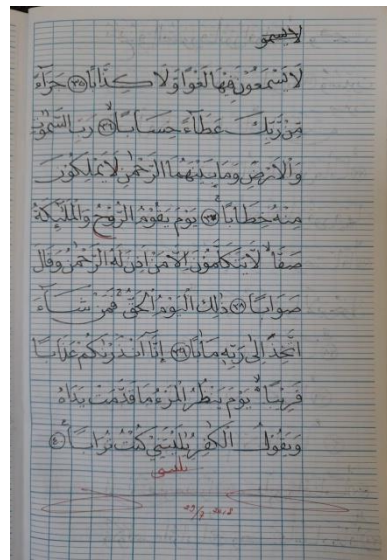 لا يسمعو
لَا يَسْمَعُونَ فِيهَا لَغْوًا وَلَا كِذَّابًا ٣٥ جَزَآءً
مِنْ رَبِّكَ عَطَآءً حِسَابًا ٣٦ رَبِّ السَّمٰوٰتِ
وَالْاَرْضِ وَمَا بَيْنَهُمَا الرَّحْمٰنِ لَا يَمْلِكُونَ
مِنْهُ خِطَابًا ٣٧ يَوْمَ يَقُومُ الرُّوحُ وَالْمَلٰٓئِكَةُ
صَفًّا لَا يَتَكَلَّمُونَ اِلَّا مَنْ اَذِنَ لَهُ الرَّحْمٰنُ وَقَالَ
صَوَابًا ٣٨ ذٰلِكَ الْيَوْمُ الْحَقُّ فَمَنْ شَآءَ
اتَّخَذَ اِلٰى رَبِّهِ مَاٰبًا ٣٩ اِنَّٓا اَنْذَرْنَاكُمْ عَذَابًا
قَرِيبًا يَوْمَ يَنْظُرُ الْمَرْءُ مَا قَدَّمَتْ يَدَاهُ
وَيَقُولُ الْكَافِرُ يٰلَيْتَنِي كُنْتُ تُرَابًا ٤٠
يليتني